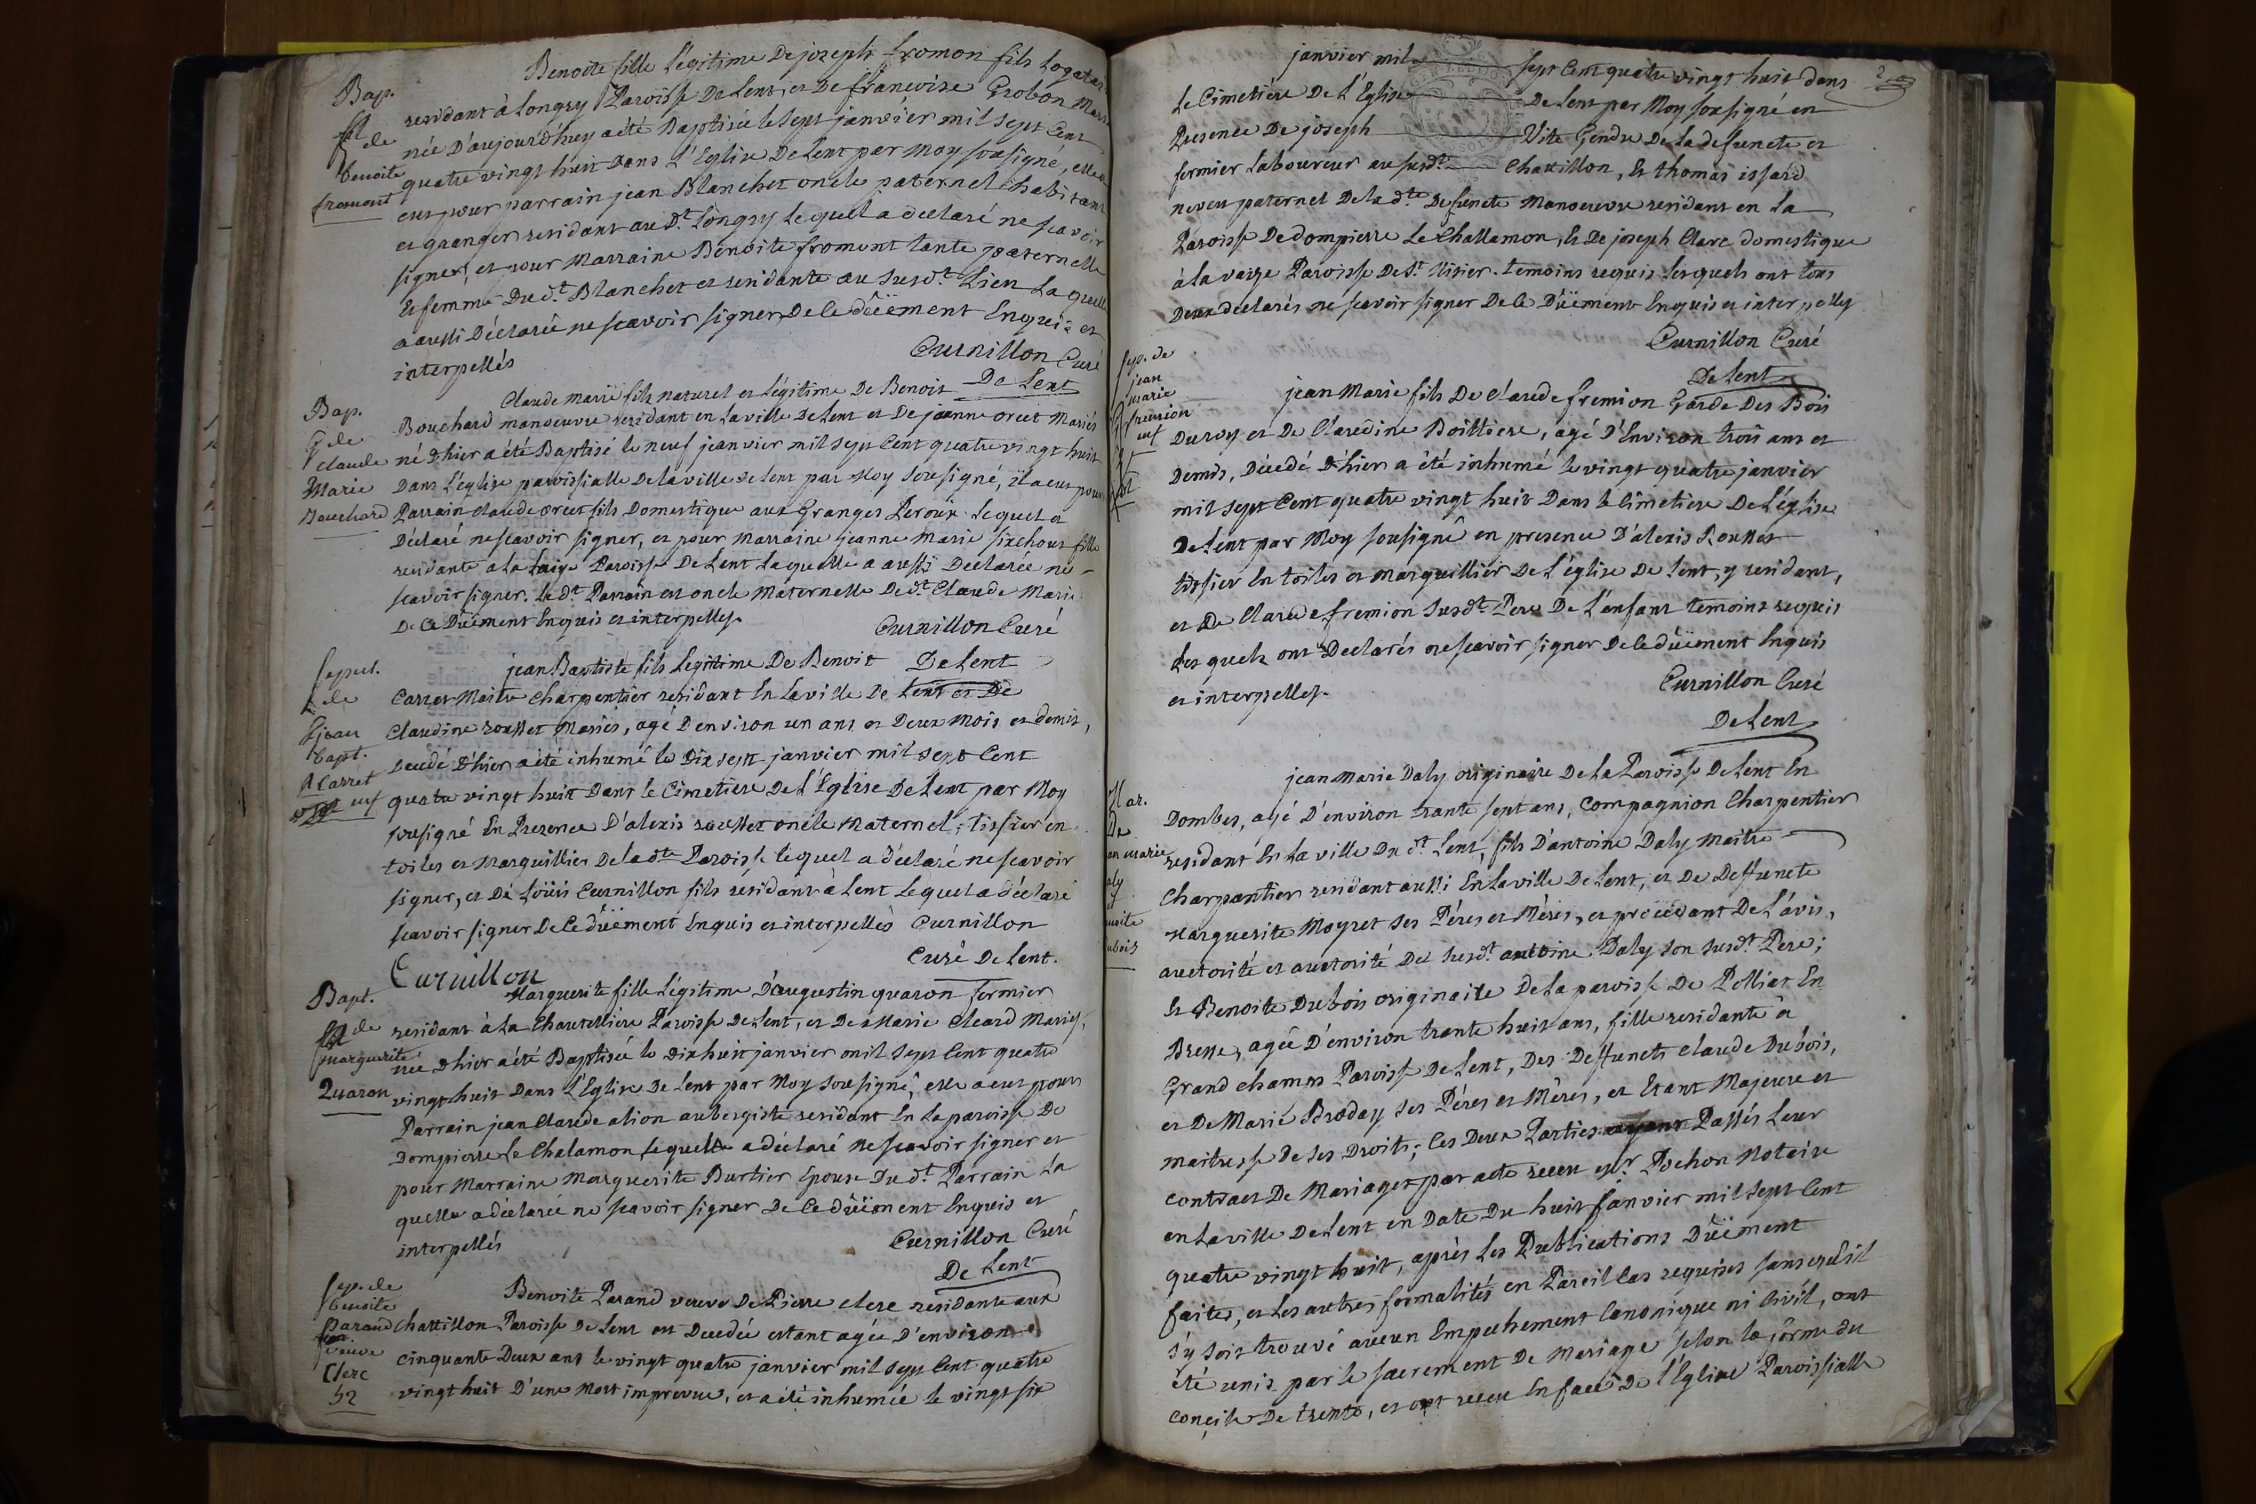 Bap.
de
benoite
fromont
Benoite fille Légitime De joseph fromon fils Logatai
residant à Longry Paroisse De Lent, et De francoise Grobon Mari
née D'aujourd'huy a été Baptisée le sept janvier mil sept Cent
quatre vingt huit dans L'Eglise De Lent par moy sousigné, elle a
eut pour parrain jean Blanchet oncle paternel habitant
et granger residant au d.t Longry Lequel a declaré ne scavoir
signer, et pour Marraine Benoite fromont tante paternelle
et femme Du d.t Blanchet et residante au susd.t Lieu La quelle
a aussi Déclarée ne scavoir signer De Ce dûëment Enquis et
interpellés
Curnillon Curé
De Lent
Bap.
de
claude
Marie
Bouchard
Claude Marie fils naturel et Légitime De Benoit
Bouchard manoeuvre residant en La ville De Lent et De jeanne orcet Mariés
né D'hier a été Baptisé le neuf janvier mil sept Cent quatre vingt huit
Dans L'église paroissialle De la ville De Lent par Moy Sousigné, il a eut pour
Parrain claude orcet fils Domestique aux Granges Peroux Lequel a
Declaré ne scavoir signer, et pour Marraine jeanne Marie sixhour fille
residante a la Laiye Paroisse De Lent Laquelle a aussi Declarée ne
scavoir signer. Le d.t Parrain est oncle Maternelle De d.t Claude Marie
De Ce Duëment Enquis et interpellez.
Curnillon Curé
De Lent
sepul.
de
jean
bapt.
Carret
jean Baptiste fils Legitime De Benoit
Carret Maitre Charpentier residant En La ville De Lent et De
Claudine Rousset Mariés, agé D'environ un ans et Deux Mois et demis,
Decedé D'hier a été inhumé le Dix sept janvier mil sept Cent
quatre vingt huit Dans le Cimetiere De L'Eglise De Lent par Moy
sousigné En Presence D'alexis rousset oncle Maternel, tissier en
toiles et Marguillier De la d.te Paroisse Lequel a déclaré ne scavoir
signer, et Dé Loüis Curnillon fils residant à Lent Lequel a déclaré
scavoir signer De Ce dûëment Enquis et interpellés Curnillon
Curé De Lent.
Curnillon
Bapt.
de
marguerite
Quaron
Marguerite fille Légitime D'augustin quaron fermier
residant à La Chatelliere Paroisse De Lent, et De Marie Cleard Mariés,
née D'hier a été Baptisée le Dixhuit janvier mil Sept Cent quatre
vingt huit Dans L'Eglise De Lent par Moy Sousigné, elle a eut pour
Parrain jean Claude alion aubergiste residant En La paroisse De
Dompierre Le Chalamon Lequelle a déclaré ne scavoir signer et
pour Marraine Marguerite Burtier Epouse Du d.t Parrain La
quelle a déclarée ne scavoir signer De Ce dûëment Enquis et
interpellés
Curnillon Curé
De Lent
sep. de
benoite
parand
veuve
Clerc
52
Benoite Parand veuve De Pierre clerc residante aux
Chattillon Paroisse De Lent est Decedée estant agée D'environ
cinquante Deux ans le vingt quatre janvier mil Sept Cent quatre
vingt huit D'une Mort imprevue, et a été inhumée le vingt six
2
janvier mil sept Cent quatre vingt huit dans
Le Cimetière De L'Eglise De Lent par Moy sousigné en
Presence De joseph Vite Gendre De La defuncte et
fermier Laboureur au susd.t Chatillon, Et thomas issard
neveu paternel De la d.te Defuncte Manoeuvre residant en La
Paroisse De dompierre Le Challamon, Et De joseph Clerc domestique
à La vaize Paroisse De S.t Nizier. temoins requis Lesquels ont tous
Deux declarés ne scavoir signer De Ce Dûëment Enquis et interpellez
Curnillon Curé
De Lent
sep. de
jean
marie
fremion
jean Marie fils De Claude fremion Garde Des Bois
Du roy et De Claudine Boittiere, agé D'Environ trois ans et
Demis, Décedé D'hier a été inhumé le vingt quatre janvier
mil sept Cent quatre vingt huit Dans le Cimetiere De L'église
De Lent par Moy sousigné en presence D'alexis Rousset
tissier En toiles et Marguillier De L'église De Lent, y residant,
et De Claude fremion susd.t Pere De L'enfant temoins requis
Les quels ont Declarés ne scavoir signer De Ce dûëment Enquis
et interpellez.
Curnillon Curé
De Lent
Mar.
De
jean marie
Daly
benoite
dubois
jean Marie Daly originaire De La Paroisse De Lent En
Dombes, agé D'environ trante sept ans, Compagnion Charpentier
residant En La ville Du d.t Lent, fils D'antoine Daly Maitre
Charpantier residant aussi En La ville De Lent, et De Deffuncte
Marguerite Moyret Ses Péres et Méres, et procedant De L'avis,
auctorité et auctorité Du susd.t antoine Daly son susd.t Pere;
Et Benoite Dubois originaire de La paroisse De Polliat En
Bresse, agée D'environ trante huit ans, fille residante à
Grand champs Paroisse De Lent, Des Deffuncts Claude Dubois,
et De Marie Broday ses Péres et Méres, et Etant Majeure et
maitresse de ses Droits; Ces Deux Parties Passés Leur
contract De Mariage par acte receu m.r Pochon Notaire
en La ville De Lent en Date Du huit janvier mil sept Cent
quatre vingt huit, après Les Publications Dûëment
faites, et Les autres formalités en Pareil Cas requises sans qu'il
s'y soit trouvé aucun Empechement Canonique ni Civil, ont
été unis par le sacrement De Mariage selon la forme du
concile De trente, et ont receu En face De l'Eglise Paroissialle